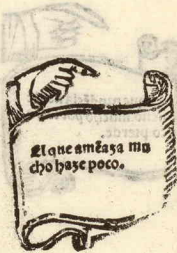 El que amēaza mu
cho haze poco.